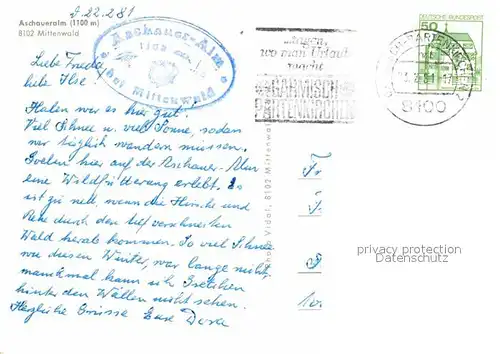 d 22.2 81
Aschaueralm (1100 m)
8102 Mittenwald
Aschauer-Alm
1100
bei Mittenwald
Liebe Frieda,
liebe Ilse!
Haben wir es hier gut.
Viel Schnee u. viel Sonne, sodaß
wir täglich wandern müssen.
Soeben hier auf der Aschauer-Alm
eine Wildfütterung erlebt. Es
ist zu nett wenn die Hirsche und
Rehe durch den tief verschneiten
Wald herab kommen. So viel Schnee
wie diesen Winter, war lange nicht,
manchmal kann ich Gretchen
hinter den Wällen nicht sehen.
Herzliche Grüsse Eure Dora
wo man Urlaub
macht
GARMISCH
PARTENKIRCHEN
8100
50
DEUTSCHE BUNDESPOST
Vidal, 8102 Mittenwald
privacy protection
Datenschutz